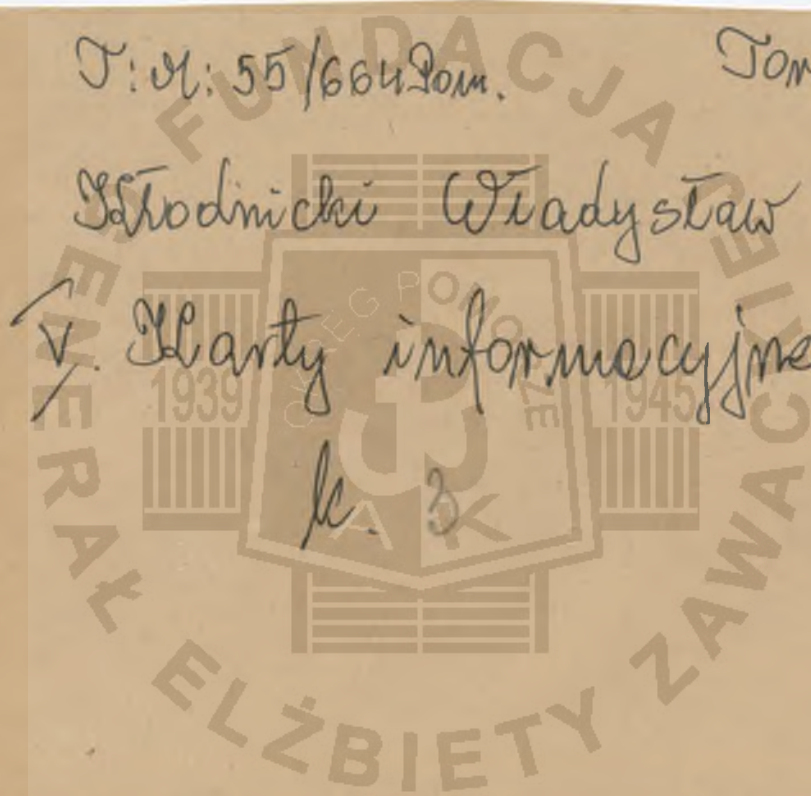 T: M: 55/664 Pom. Tor
Kłodnicki Władysław
V. Karty informacyjne
k. 3
FUNDACJA
GENERAŁ ELŻBIETY ZAWACKIEJ
OKRĘG POMORZE
1939 1945
AK